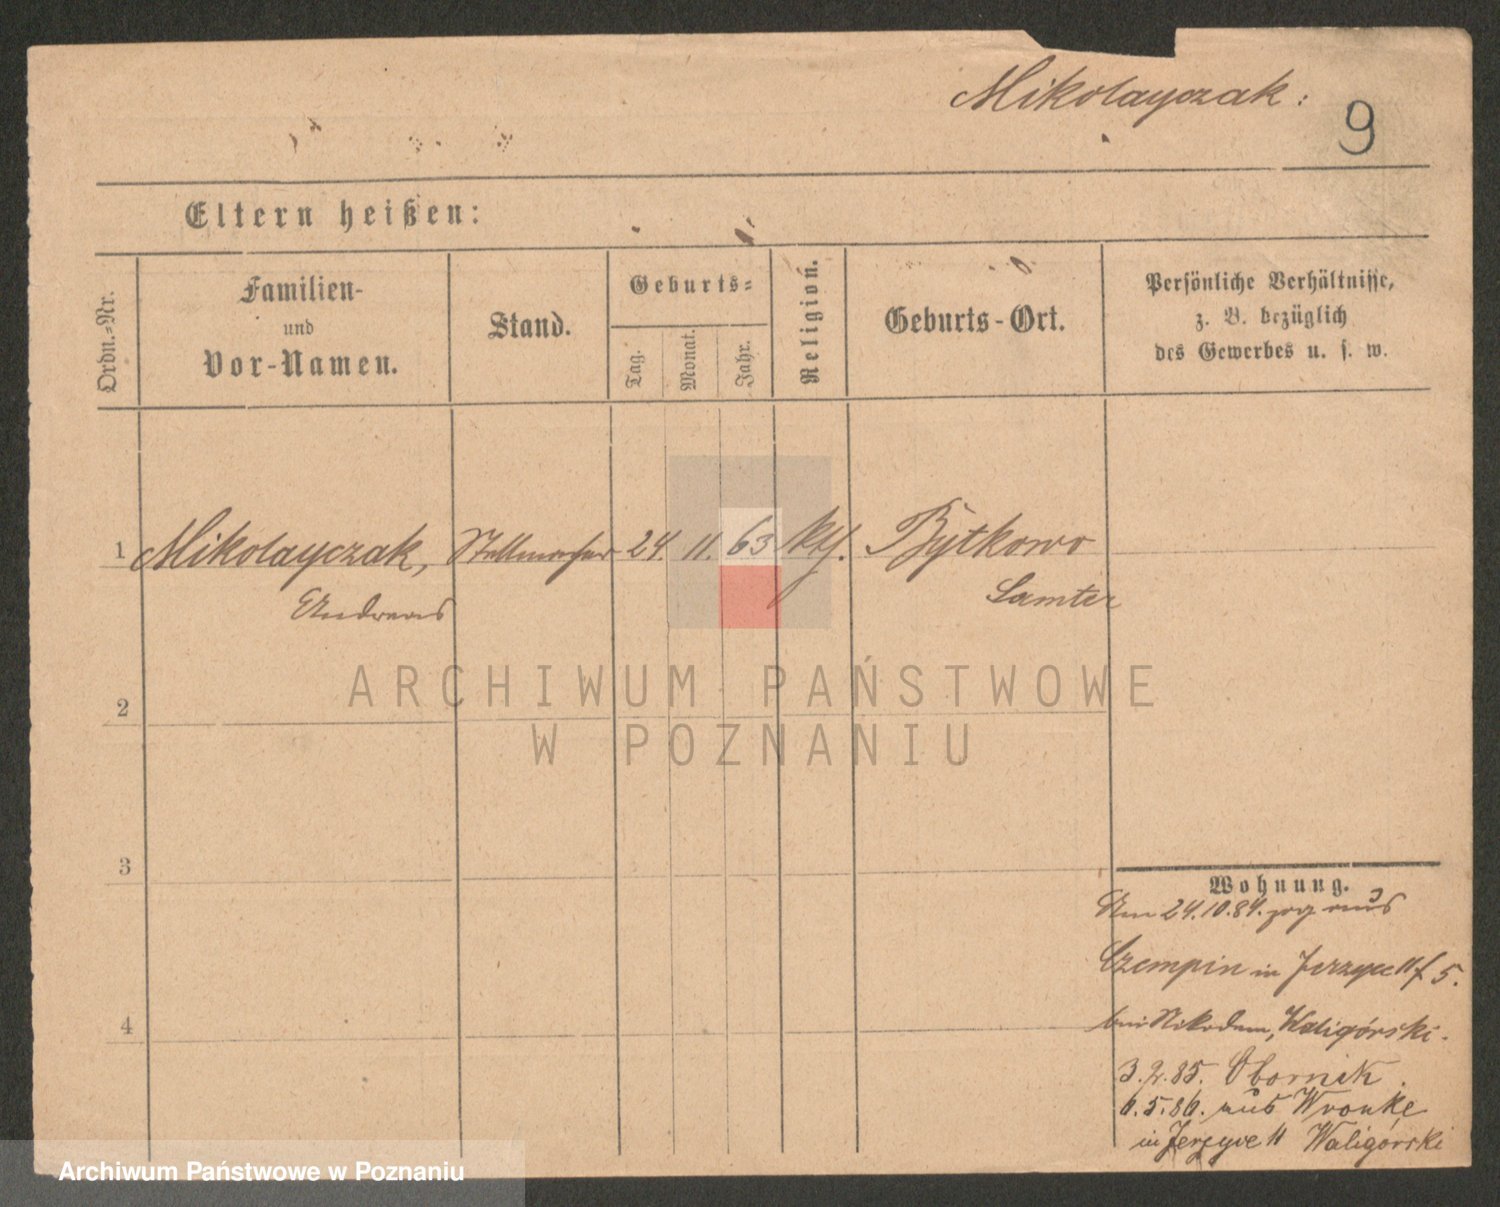 Mikolayczak:
9
Eltern heißen:
Ordn.=Nr.
Familien-
und
Vor-Namen.
Stand.
Geburts=
Tag.
Monat.
Jahr.
Religion.
Geburts-Ort.
Persönliche Verhältnisse,
z. B. bezüglich
des Gewerbes u. s. w.
1 Mikolayczak, Stellmacher 24. 11. 63 kth. Bytkowo
Andreas Samter
ARCHIWUM PAŃSTWOWE
W POZNANIU
2
3
4
Wohnung.
Am 24.10.84. zog aus
Czempin in Jerzyce 11 f 5.
bei Nikodem, Waligórski.
3.2.85. Obornik.
6.5.86. aus Wronke
in Jerzyce 11 Waligórski
Archiwum Państwowe w Poznaniu